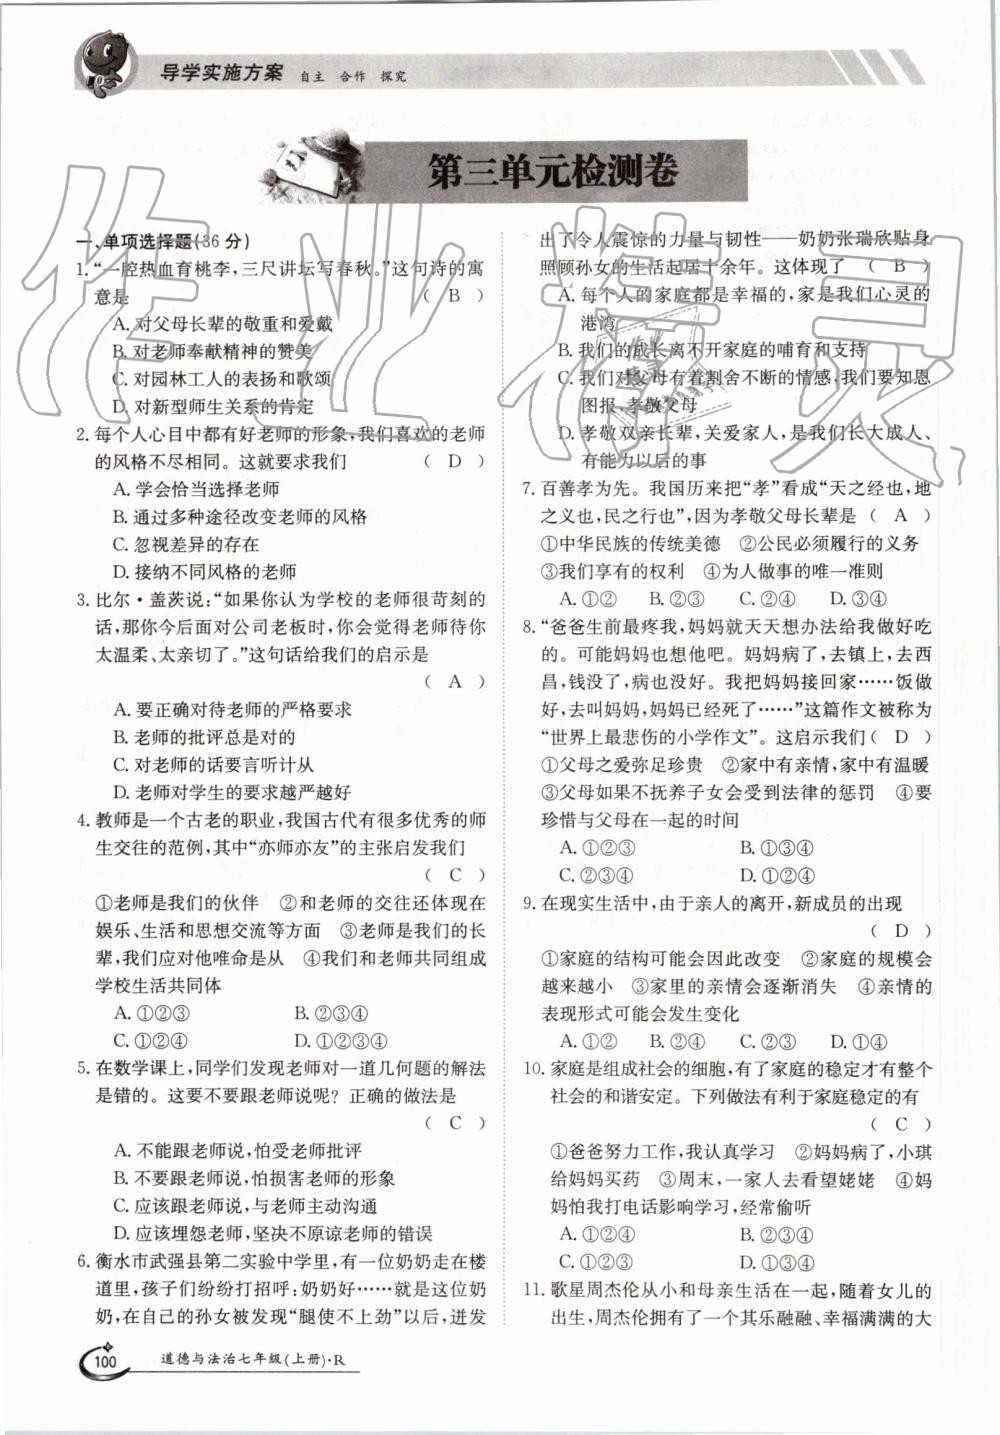 导学实施方案 自主 合作 探究
第三单元检测卷
一、单项选择题(36分)
1. “一腔热血育桃李,三尺讲坛写春秋。”这句诗的寓
意是 ( B )
A. 对父母长辈的敬重和爱戴
B. 对老师奉献精神的赞美
C. 对园林工人的表扬和歌颂
D. 对新型师生关系的肯定
2. 每个人心目中都有好老师的形象,我们喜欢的老师
的风格不尽相同。这就要求我们 ( D )
A. 学会恰当选择老师
B. 通过多种途径改变老师的风格
C. 忽视差异的存在
D. 接纳不同风格的老师
3. 比尔·盖茨说:“如果你认为学校的老师很苛刻的
话,那你今后面对公司老板时,你会觉得老师待你
太温柔、太亲切了。”这句话给我们的启示是
( A )
A. 要正确对待老师的严格要求
B. 老师的批评总是对的
C. 对老师的话要言听计从
D. 老师对学生的要求越严越好
4. 教师是一个古老的职业,我国古代有很多优秀的师
生交往的范例,其中“亦师亦友”的主张启发我们
( C )
①老师是我们的伙伴 ②和老师的交往还体现在
娱乐、生活和思想交流等方面 ③老师是我们的长
辈,我们应对他唯命是从 ④我们和老师共同组成
学校生活共同体
A. ①②③ B. ②③④
C. ①②④ D. ①②③④
5. 在数学课上,同学们发现老师对一道几何题的解法
是错的。这要不要跟老师说呢?正确的做法是
( C )
A. 不能跟老师说,怕受老师批评
B. 不要跟老师说,怕损害老师的形象
C. 应该跟老师说,与老师主动沟通
D. 应该埋怨老师,坚决不原谅老师的错误
6. 衡水市武强县第二实验中学里,有一位奶奶走在楼
道里,孩子们纷纷打招呼:奶奶好……就是这位奶
奶,在自己的孙女被发现“腿使不上劲”以后,迸发
出了令人震惊的力量与韧性——奶奶张瑞欣贴身
照顾孙女的生活起居十余年。这体现了 ( B )
A. 每个人的家庭都是幸福的,家是我们心灵的
港湾
B. 我们的成长离不开家庭的哺育和支持
C. 我们对父母有着割舍不断的情感,我们要知恩
图报、孝敬父母
D. 孝敬双亲长辈,关爱家人,是我们长大成人、
有能力以后的事
7. 百善孝为先。我国历来把“孝”看成“天之经也,地
之义也,民之行也”,因为孝敬父母长辈是 ( A )
①中华民族的传统美德 ②公民必须履行的义务
③我们享有的权利 ④为人做事的唯一准则
A. ①② B. ②③ C. ②④ D. ③④
8. “爸爸生前最疼我,妈妈就天天想办法给我做好吃
的。可能妈妈也想他吧。妈妈病了,去镇上,去西
昌,钱没了,病也没好。我把妈妈接回家……饭做
好,去叫妈妈,妈妈已经死了……”这篇作文被称为
“世界上最悲伤的小学作文”。这启示我们( D )
①父母之爱弥足珍贵 ②家中有亲情,家中有温暖
③父母如果不抚养子女会受到法律的惩罚 ④要
珍惜与父母在一起的时间
A. ①②③ B. ①③④
C. ②③④ D. ①②④
9. 在现实生活中,由于亲人的离开,新成员的出现
( D )
①家庭的结构可能会因此改变 ②家庭的规模会
越来越小 ③家里的亲情会逐渐消失 ④亲情的
表现形式可能会发生变化
A. ①② B. ②④ C. ②③ D. ①④
10. 家庭是组成社会的细胞,有了家庭的稳定才有整个
社会的和谐安定。下列做法有利于家庭稳定的有
( C )
①爸爸努力工作,我认真学习 ②妈妈病了,小琪
给妈妈买药 ③周末,一家人去看望姥姥 ④妈
妈怕我打电话影响学习,经常偷听
A. ①②④ B. ②③④
C. ①②③ D. ①③④
11. 歌星周杰伦从小和母亲生活在一起,随着女儿的
出生,周杰伦拥有了一个其乐融融、幸福满满的大
100 道德与法治七年级(上册)·R
作业精灵